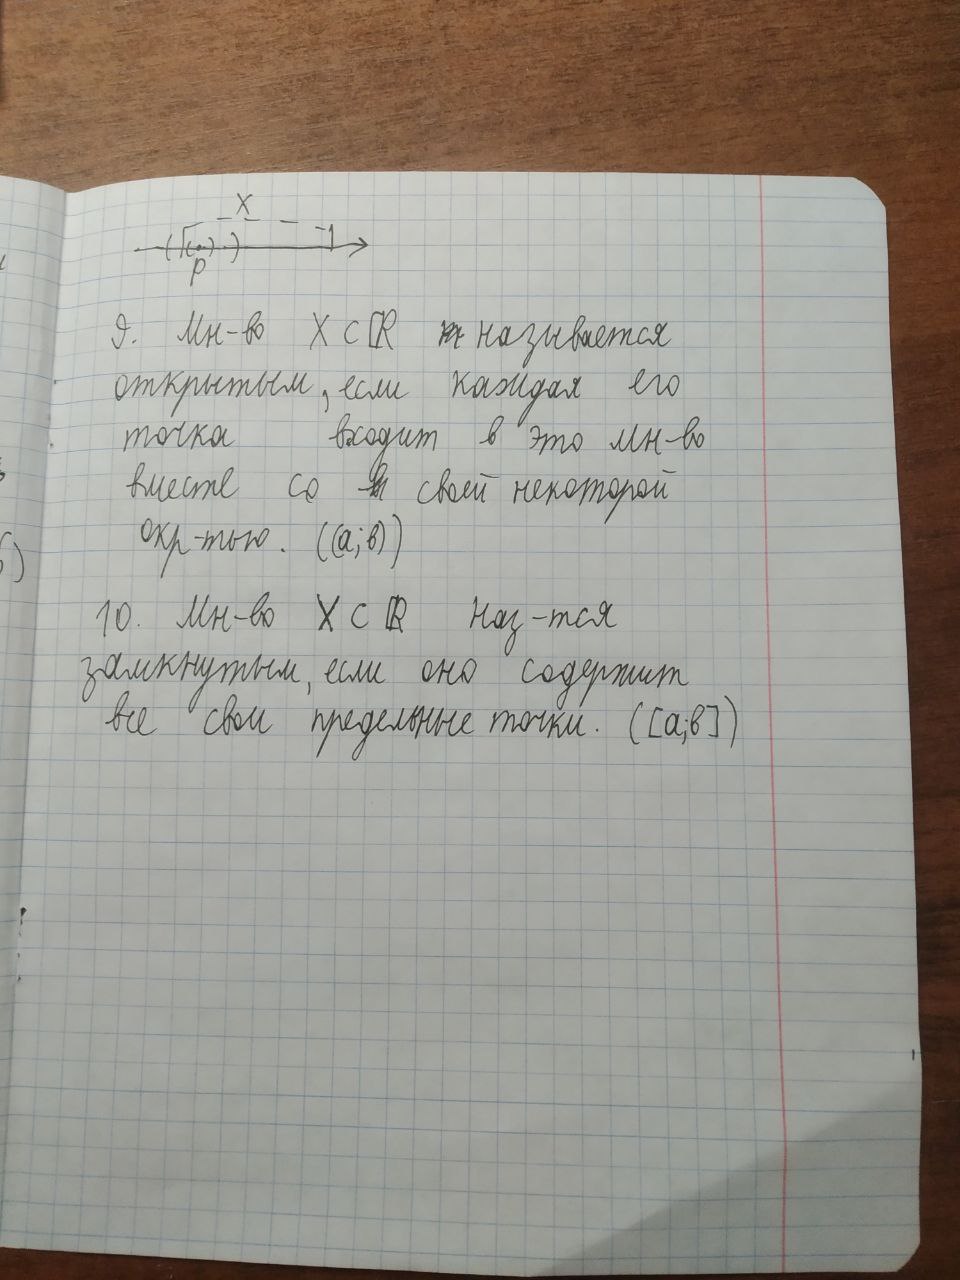 X
p
9. Мн-во X ⊂ ℝ называется
открытым, если каждая его
точка входит в это мн-во
вместе со своей некоторой
окр-тью. ((a;b))
10. Мн-во X ⊂ ℝ наз-тся
замкнутым, если оно содержит
все свои предельные точки. ([a;b])